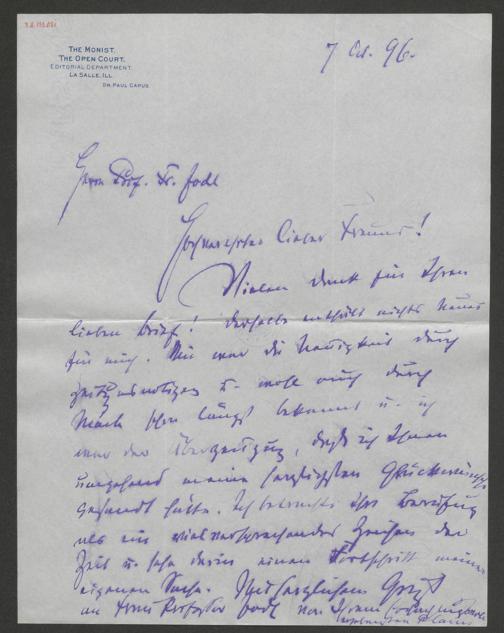 THE MONIST.
THE OPEN COURT.
EDITORIAL DEPARTMENT.
LA SALLE, ILL.
DR. PAUL CARUS
7 Oct. 96.
Herrn Prof. Dr. Jodl
Hochverehrter lieber Freund!
Vielen Dank für Ihren
lieben Brief! Derselbe enthält nichts Neues
für mich. Mir war die Neuigkeit durch
Zeitungsnotizen u. wohl auch durch
Mach schon längst bekannt u. ich
war der Überzeugung, daß ich Ihnen
umgehend meine herzlichsten Glückwünsche
gesandt hätte. Ich betrachte Ihre Berufung
als ein vielversprechendes Zeichen der
Zeit u. sehe darin einen Fortschritt meiner
eigenen Sache. Mit herzlichem Gruß
an Frau Professor Jodl von Ihrem
ergebensten P. Carus